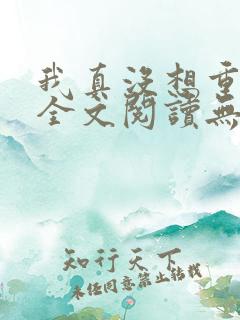 我真没想重
全文阅读無
知行天下
未经同意禁止转载